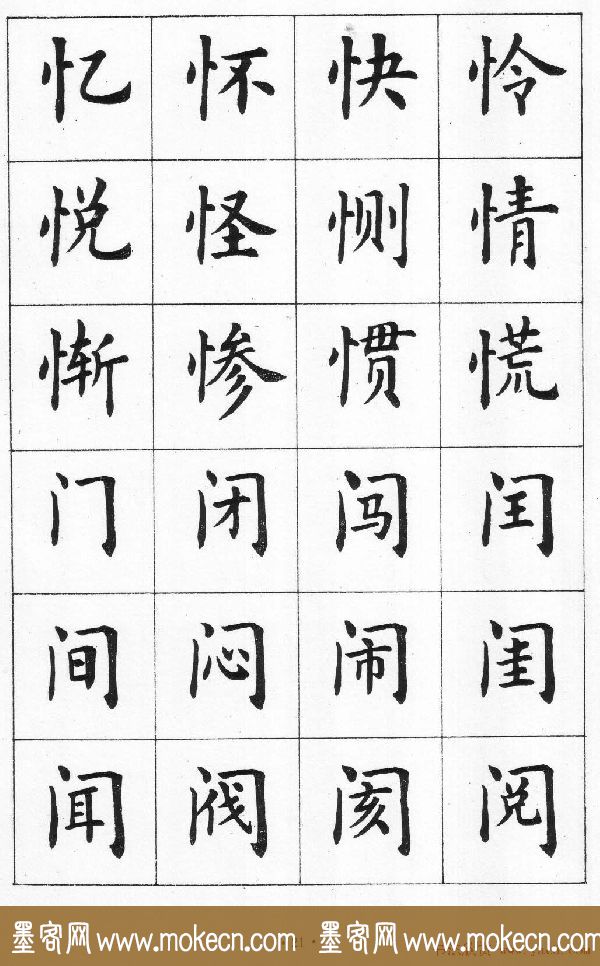 忆 怀 快 怜
悦 怪 恻 情
惭 惨 惯 慌
门 闭 闯 闰
间 闷 闹 闺
闻 阀 阂 阅
墨客网 www.mokecn.com 墨客网 www.mokecn.com